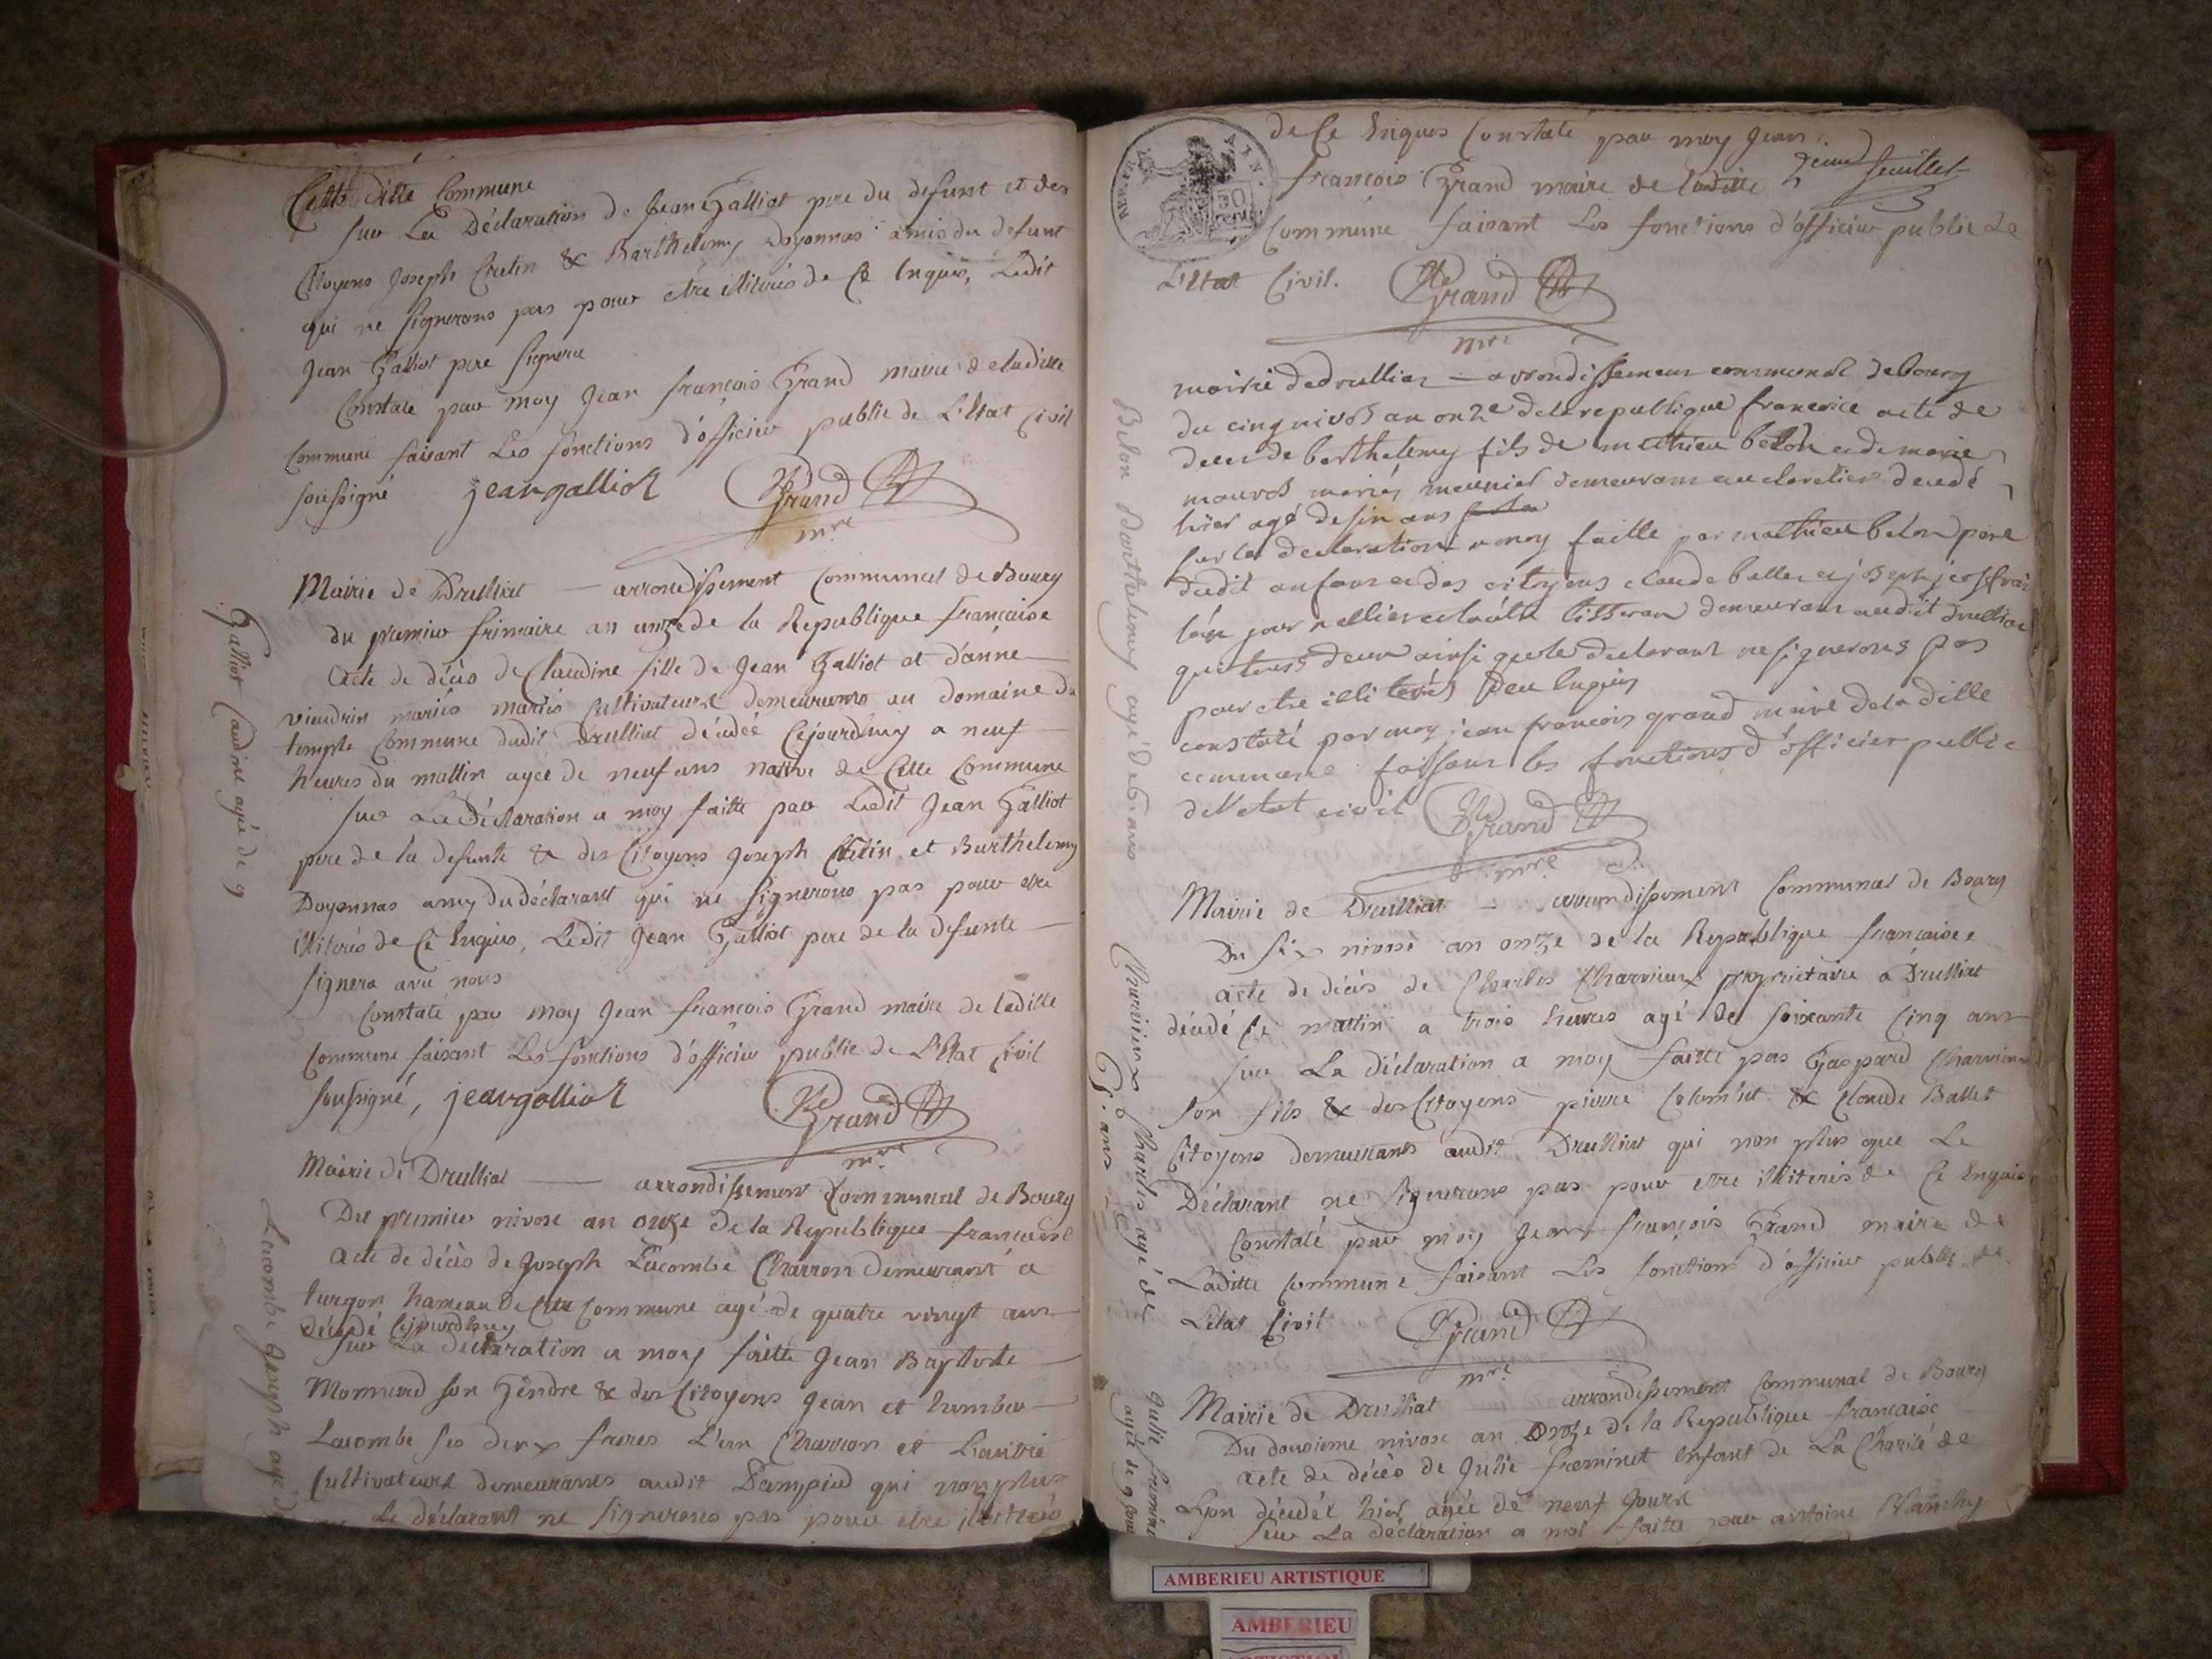 Cette ditte Commune
sur La Déclaration de Jean Galliot pere du defunt et des
Citoyens Joseph Cretin & Barthelemy Doyonnas amis du defunt
qui ne signerons pas pour etre illiterés de Ce Enquis, Ledit
Jean Galliot pere signera
Constaté par moy Jean françois Grand maire de laditte
Commune faisant Les fonctions d'officier public de L'Etat Civil
soussigné jean galliot Grand
mre
Mairie de Drulliat — arrondissement Communal de Bourg
du premier frimaire an unze de la Republique française
Acte de décès de Claudine fille de Jean Galliot et d'anne
vieudrin mariés mariés Cultivateurs demeurants au domaine du
temple Commune dudit Drulliat décédée Cejourdhuy a neuf
heures du mattin agée de neuf ans native de Cette Commune
sur La Déclaration a moy faitte par Ledit Jean Galliot
pere de la defunte & des Citoyens Joseph Cretin et Barthelemy
Doyonnas amy du déclarant qui ne signerons pas pour etre
illiterés de Ce Enquis, Ledit Jean Galliot pere de la defunte
signera avec nous
Constaté par moy Jean françois Grand maire de laditte
Commune faisant Les fonctions d'officier public de L'Etat Civil
soussigné, jean galliot Grand
mre
Mairie de Drulliat — arrondissement Communal de Bourg
Du premier nivose an onze de la Republique francaise
Acte de décès de Joseph Lacombe Charron demeurant a
turgon hameau de Cette Commune agé de quatre vingt ans
décédé Cejourdhuy
sur La déclaration a moy faitte Jean Baptiste
Monnard son Gendre & des Citoyens Jean et humber
Lacombe ses deux freres L'un Charron et L'autre
Cultivateurs demeurants audit Dampied qui non plus
que Le déclarant ne signerons pas pour etre illiterés
Galliot Claudine agée de 9
Lacombe Joseph agé
de Ce Enquis Constaté par moy Jean
françois Grand maire de laditte 2eme feuillet
Commune faisant Les fonctions d'officier public de
L'Etat Civil. Grand
mre
mairie de drulliat — arrondissement communal de bourg
du cinq nivos an onze de la republique francoise acte de
deces de berthelemy fils de mathieu belon et de marie
mauvos mariés meunier demeurans au chatelier decedé
hier agé de six ans
sur la declaration a moy faitte par mathieu belon pere
dudit anfans et des citoyens claude ballet et joseph
tisseran demeurans audit drulliat
que tous deux ainsi que le déclarant ne signerons pas
pour etre illiterés de ce enquis
constaté par moy jean francois grand maire de la ditte
commune faisans les fonctions d'officier public
de l'etat civil Grand
mre
Mairie de Drulliat — arrondissement Communal de Bourg
Du six nivose an onze de la Republique francaise
acte de décès de Charles Charvieux proprietaire a Drulliat
décédé Ce mattin a trois heures agé de soixante Cinq ans
sur La déclaration a moy faitte par Gaspard Charvieux
son fils & des Citoyens pierre Colombet & Claude Ballet
Citoyens demeurants audit Drulliat qui non plus que Le
Déclarant ne signerons pas pour etre illiterés de Ce Enquis
Constaté par moy Jean françois Grand maire de
Laditte Commune faisant Les fonctions d'officier public de
L'etat Civil Grand
mre
Mairie de Drulliat arrondissement Communal de Bourg
Du douzieme nivose an onze de la Republique francaise
acte de décès de Julie freminet Enfant de La Charité de
Lyon décédée hier agée de neuf jours
sur La déclaration a moi faitte par antoine
Belon Barthelemy agé de 6 ans
Charvieux Charles agé de
65 ans
Julie freminet
agée de 9 jours
REP. FRA.
AIN.
50
AMBERIEU ARTISTIQUE
AMBERIEU
ARTISTIQUE